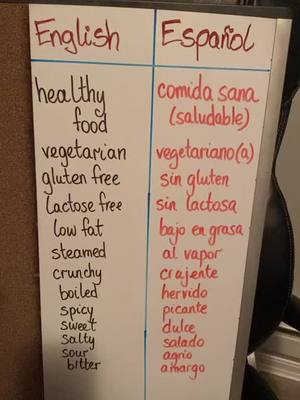 English Español
healthy comida sana
food (saludable)
vegetarian vegetariano(a)
gluten free sin gluten
lactose free sin lactosa
low fat bajo en grasa
steamed al vapor
crunchy crajente
boiled hervido
spicy picante
sweet dulce
salty salado
sour agrio
bitter amargo